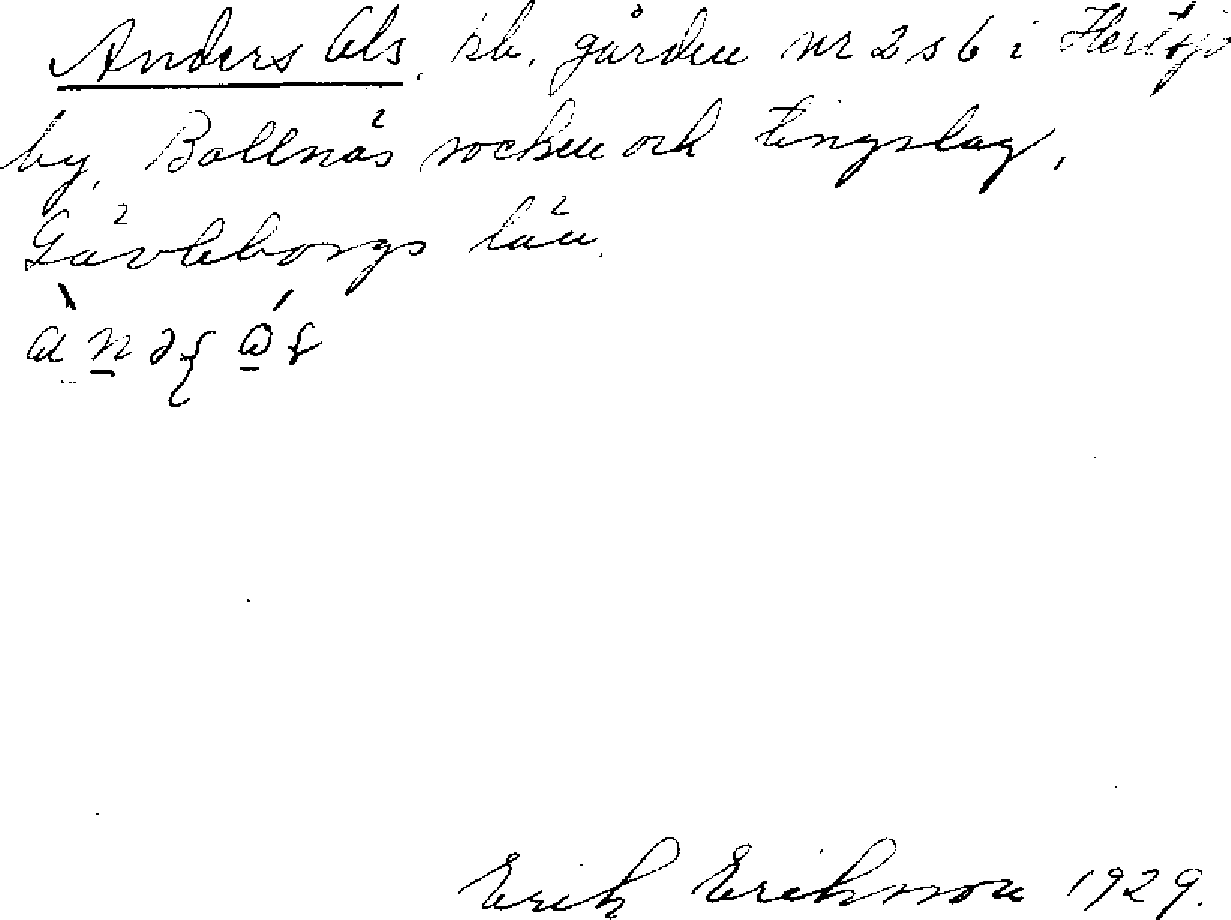 Anders Ols, kb. gården nr 2 s 6 i Hertsjö
by, Bollnäs socken och tingslag,
Gävleborgs län.
Erik Eriksson 1929.